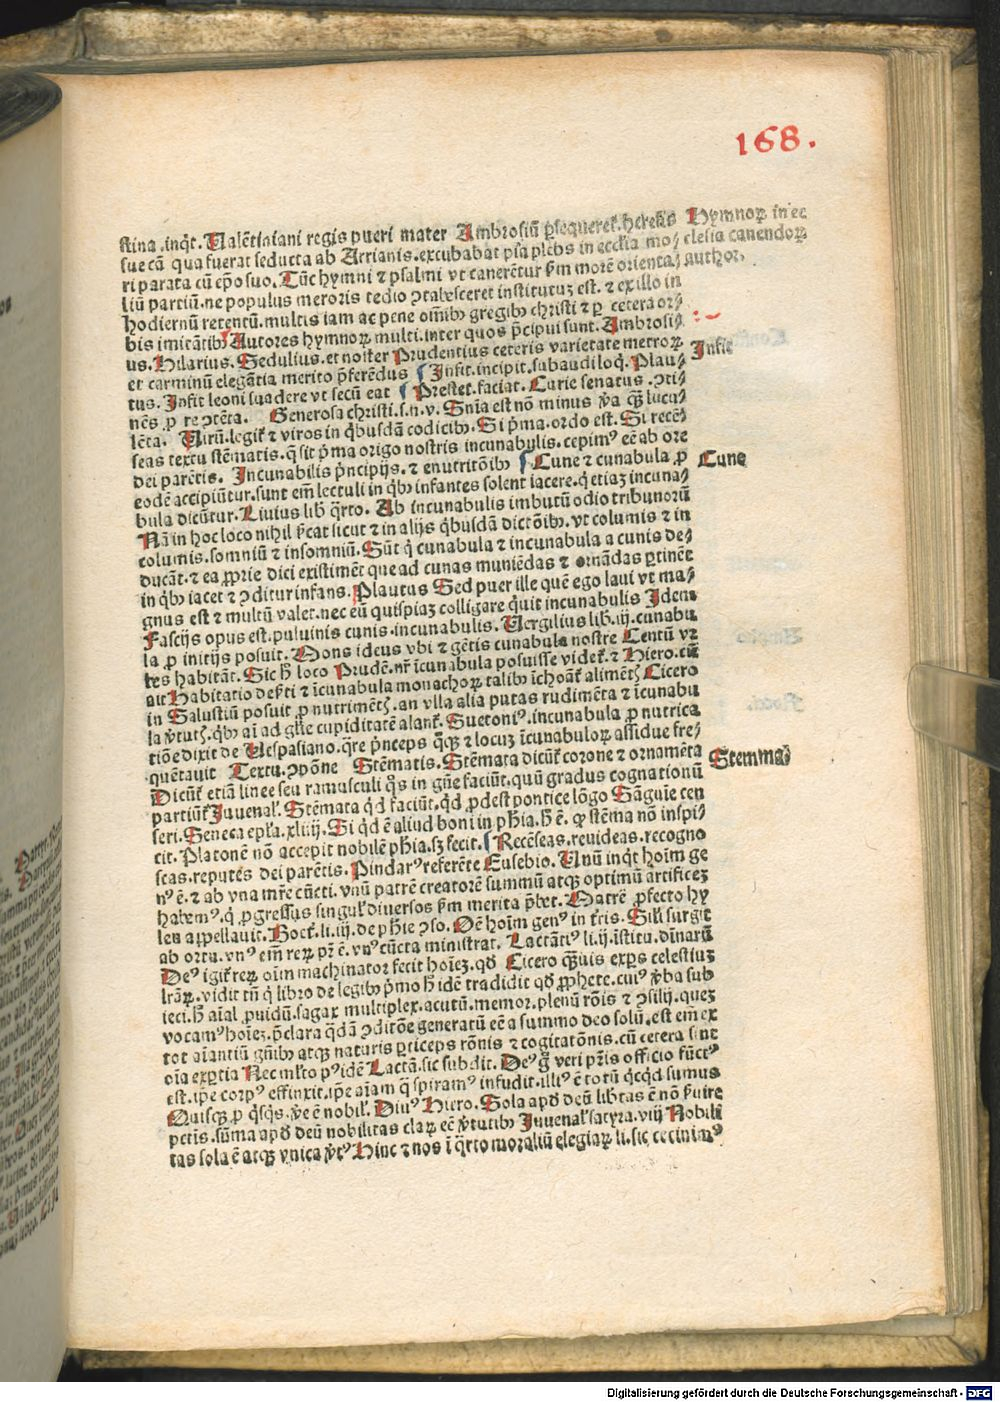 168.
stina .inqt. Ualētiniani regis pueri mater Ambrosiū ꝑsequeret̄. heresis
Hymnoꝝ in ec
sue cā qua fuerat seducta ab Arrianis. excubabat pia plebs in ecclia mo⸗
clesia canendoꝝ
ri parata cū ep̄o suo. Tūc hymni ⁊ psalmi vt canerētur ẜm morē orienta⸗
author.
liū partiū. ne populus meroris tedio ꝯtabesceret institutuꝫ est. ⁊ ex illo in
hodiernū retentū. multis iam ac pene om̄ibꝰ gregibꝰ christi ⁊ ꝑ cetera or⸗
bis imitātibꝰ Autores hymnoꝝ multi. inter quos p̄cipui sunt. Ambrosi⸗
us. Hilarius. Sedulius. et noster Prudentius ceteris varietate metroꝝ
Infit
et carminū elegātia merito p̄ferēdus Infit. incipit. subaudi loq̄. Plau⸗
tus. Infit leoni suadere vt secū eat Prestet. faciat. Curie senatus .ꝯti⸗
nēs ꝓ re ꝯtēta. Generosa christi .s.n.v. Snīa est nō minus ꝟa q̄ꝫ lucu⸗
lēta. Uirū. legit̄ ⁊ viros in q̄busdā codicibꝰ. Si p̄ma. ordo est. Si recē⸗
seas textu stēmatis. q̄ sit p̄ma origo nostris incunabulis. cepimꝰ eē ab ore
dei parētis. Incunabilis p̄ncipijs. ⁊ enutritōibꝰ Cune ⁊ cunabula ꝓ
Cune
eodē accipiūtur. sunt em̄ lectuli in q̄bꝰ infantes solent iacere. q̄ etiaꝫ incuna⸗
bula dicūtur. Liuius lib̄ q̄rto. Ab incunabulis imbutū odio tribunoꝝ
Nā in hoc loco nihil p̄cat sicut ⁊ in alijs q̄busdā dictōibꝰ. vt columis ⁊ in
columis. somniū ⁊ insomniū. Sūt q̄ cunabula ⁊ incunabula a cunis de⸗
ducāt. ⁊ ea ꝓprie dici existimēt que ad cunas muniēdas ⁊ ornādas ꝑtinēt
in q̄bꝰ iacet ⁊ ꝯditur infans. Plautus Sed puer ille quē ego laui vt ma⸗
gnus est ⁊ multū valet. nec eū quispiaꝫ colligare q̄uit incunabulis Idem
Fascijs opus est. puluinis cunis. incunabulis. Uergilius lib̄. iij. cunabu
la ꝓ initijs posuit. Mons ideus vbi ⁊ gētis cunabula nostre Centū vr
bes habitāt. Sic h̄ loco Prudē. nr̄ īcunabula posuisse videt̄. ⁊ Hiero. cū
ait Habitatio ⁊ īcunabula monachoꝝ talibꝰ īchoāt̄ alimētꝭ Cicero
in Salustiū posuit ꝓ nutrimētꝭ. an vlla alia putas rudimēta ⁊ īcunabu
la ꝟtutꝭ. q̄bꝰ aī ad glīe cupiditatē alant̄. Suetoniꝰ. incunabula ꝓ nutrica
tiōe dixit de Uespasiano. q̄re p̄nceps q̄ꝫ ⁊ locuꝫ īcunabuloꝝ assidue fre⸗
quētauit Textu. ꝯpōne Stēmatis. Stēmata dicūt̄ corone ⁊ ornamēta
Stemma
Dicūt̄ etiā linee seu ramusculi q̄s in gn̄e faciūt. quū gradus cognationū
partiūt̄ Iuuenaƚ. Stēmata q̄d faciūt. q̄d ꝓdest pontice lōgo Sāguīe cen
seri. Seneca ep̄ła. xliiij. Si q̄d ē aliud boni in pħia. h̄ ē. ꝙ stēma nō inspi⸗
cit. Platonē nō accepit nobilē pħia. sꝫ fecit. Recēseas. reuideas. recogno
scas. reputēs dei parētis. Pindarꝰ referēte Eusebio. Unū inqt hoīm ge
nꝰ ē. ⁊ ab vna mr̄e cūcti. vnū patrē creatorē summū atqꝫ optimū artificeꝫ
habemꝰ. q̄ ꝓgressus singuƚ diuersos ẜm merita p̄bet. Matrē ꝓfecto hy
len appellauit. Boet̄. li. iij. de pħie ꝯso. Oē hoīm genꝰ in tr̄is. Siƚi surgit
ab ortu. vnꝰ em̄ reꝝ pr̄ ē. vnꝰ cūcta ministrat. Lactātiꝰ li. ij. īstitu. dīnarū
Deꝰ igit̄ reꝝ oīm machinator fecit hoīeꝫ. qd̄ Cicero q̄ꝫuis exꝑs celestiuꝫ
lr̄aꝝ. vidit tn̄ q̄ libro de legibꝰ p̄mo h̄ idē tradidit qd̄ ꝓphete. cuiꝰ ꝟba sub
ieci. h̄ aīal ꝓuidū. sagax multiplex. acutū. memor. plenū rōnis ⁊ ꝯsilij. queꝫ
vocamꝰ hoīeꝫ. p̄clara q̄dā ꝯditōe generatū eē a summo deo solū. est em̄ ex
tot aīantiū gn̄ibꝰ atqꝫ naturis ꝑticeps rōnis ⁊ cogitatōnis. cū cetera sint
oīa exꝑtia Nec mƚto pꝰ idē Lactā. sic subdit. Deꝰ g̊ veri pr̄is officio fūctꝰ
est. ip̄e corpꝰ effinxit. ip̄e aīam q̄ spiramꝰ infudit. illiꝰ ē totū q̄cqd sumus
Quisqꝫ ꝓ q̄sqs. ꝟe ē nobiƚ. Diuꝰ Hiero. Sola apd̄ deū libtas ē nō ẜuire
pctis. sūma apd̄ deū nobilitas claꝝ eē ꝟtutibꝰ Iuuenaƚ satyra. viij Nobili
tas sola ē atqꝫ vnica ꝟtꝰ Hinc ⁊ nos ī q̄rto moraliū elegiaꝝ li. sic cecinimꝰ
Digitalisierung gefördert durch die Deutsche Forschungsgemeinschaft - DFG